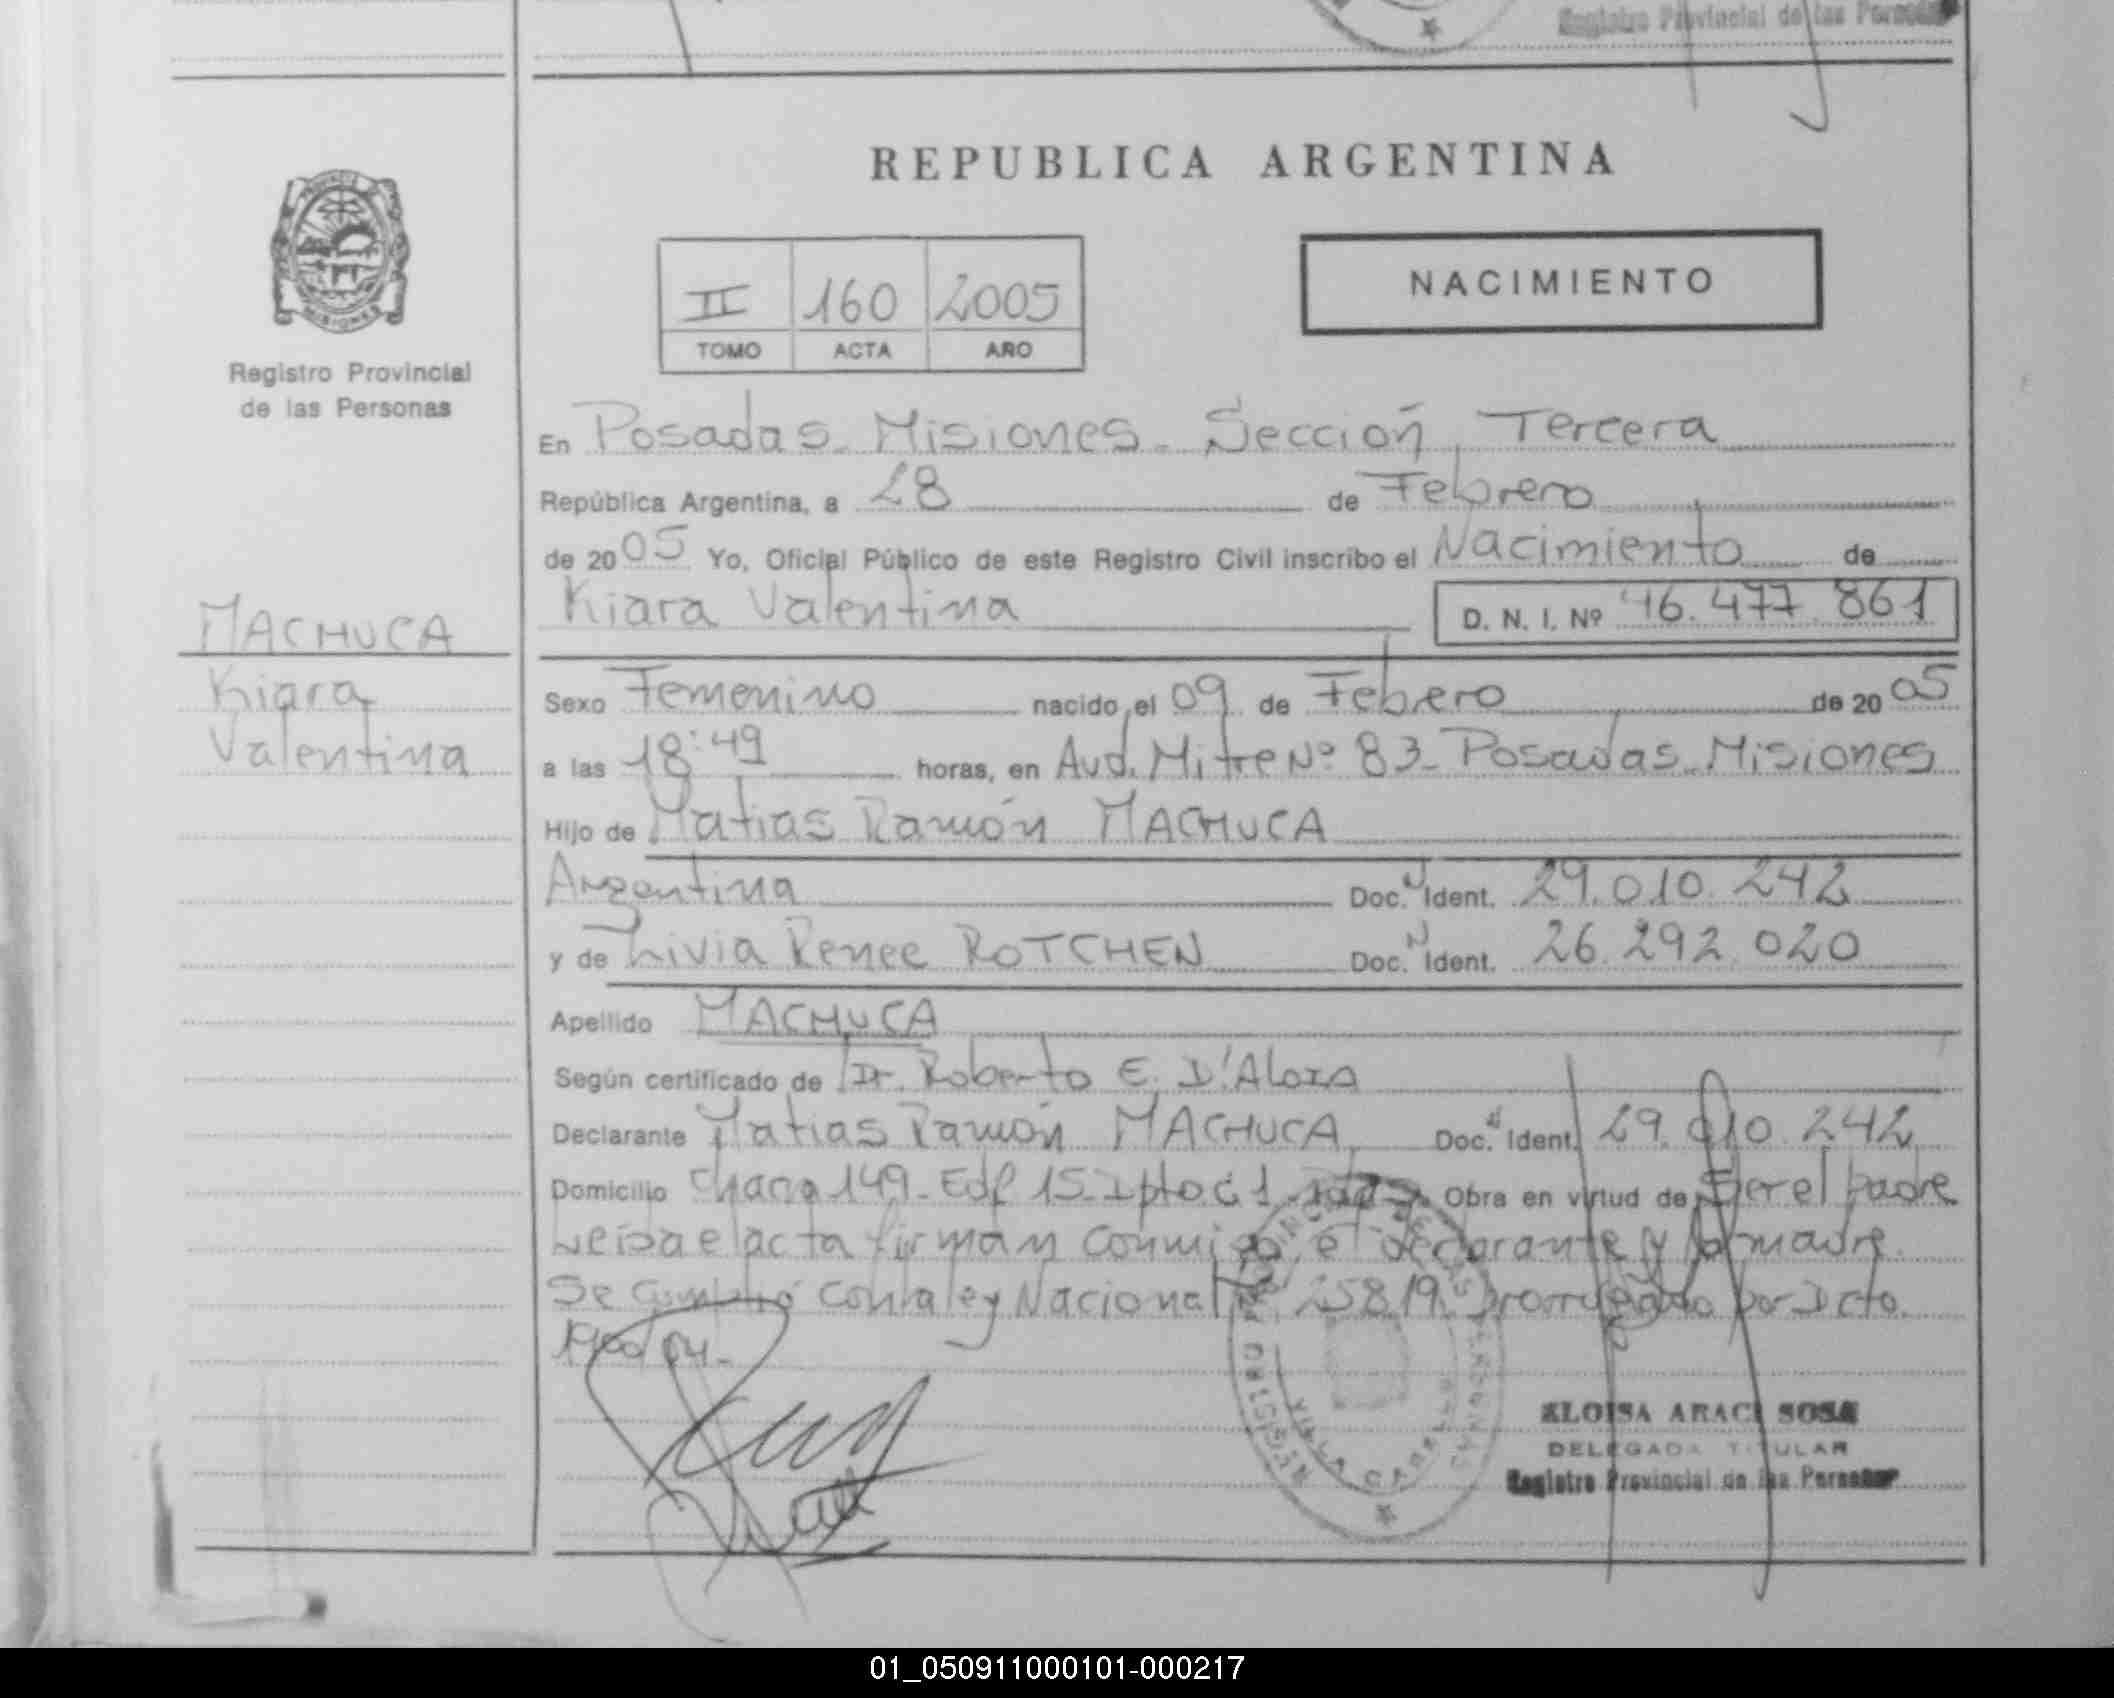 Registro Provincial de las Personas
REPUBLICA ARGENTINA
PROVINCIA
MISIONES
Registro Provincial
de las Personas
II 160 2005
TOMO ACTA AÑO
NACIMIENTO
En Posadas - Misiones - Sección Tercera
República Argentina, a 28 de Febrero
de 2005 Yo, Oficial Público de este Registro Civil inscribo el Nacimiento de
Kiara Valentina D. N. I. Nº 46.477.861
MACHUCA
Kiara
Valentina
Sexo Femenino nacido el 09 de Febrero de 2005
a las 18:49 horas, en Avd. Mitre Nº 83 - Posadas - Misiones
Hijo de Matias Ramón MACHUCA
Argentina Doc. N Ident. 29.010.242
y de Livia Renee ROTCHEN Doc. N Ident. 26.292.020
Apellido MACHUCA
Según certificado de Dr. Roberto E. D'Aloia
Declarante Matias Ramón MACHUCA Doc. N Ident. 29.010.242
Domicilio Chacra 149 - Edf 15 - Dpto C 1 Obra en virtud de Ser el padre
Leida el acta firman conmigo el declarante y la madre.
Se cumplió con la ley Nacional Nº 25819 promulgado por Dcto.
1900/04.-
VILLA CABELLO
ELOISA ARACI SOSA
DELEGADA TITULAR
Registro Provincial de las Personas
01_050911000101-000217